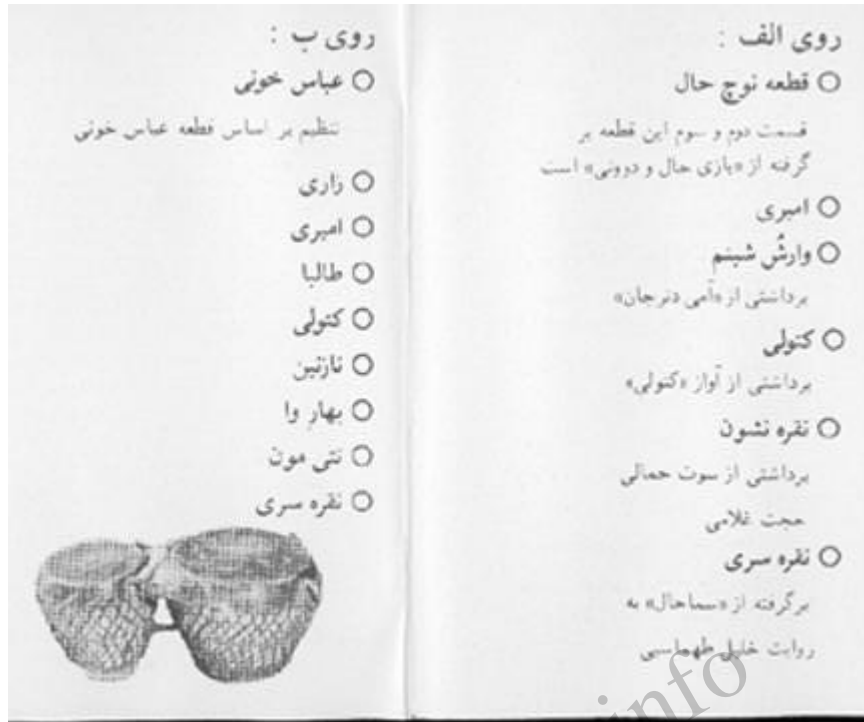 روی الف :
قطعه نوج حال
قسمت دوم و سوم این قطعه بر
گرفته از «بازی حال و دوونی» است
امیری
وارشُ شبنم
برداشتی از «آمی دنرجان»
کتولی
برداشتی از آواز «کتولی»
نقره نشون
برداشتی از سوت حمالی
حجت غلامی
نقره سری
برگرفته از «سماحال» به
روایت خلیل طهماسبی
روی ب :
عباس خونی
تنظیم بر اساس قطعه عباس خونی
زاری
امیری
طالبا
کتولی
نازنین
بهار وا
نتی مون
نقره سری
info